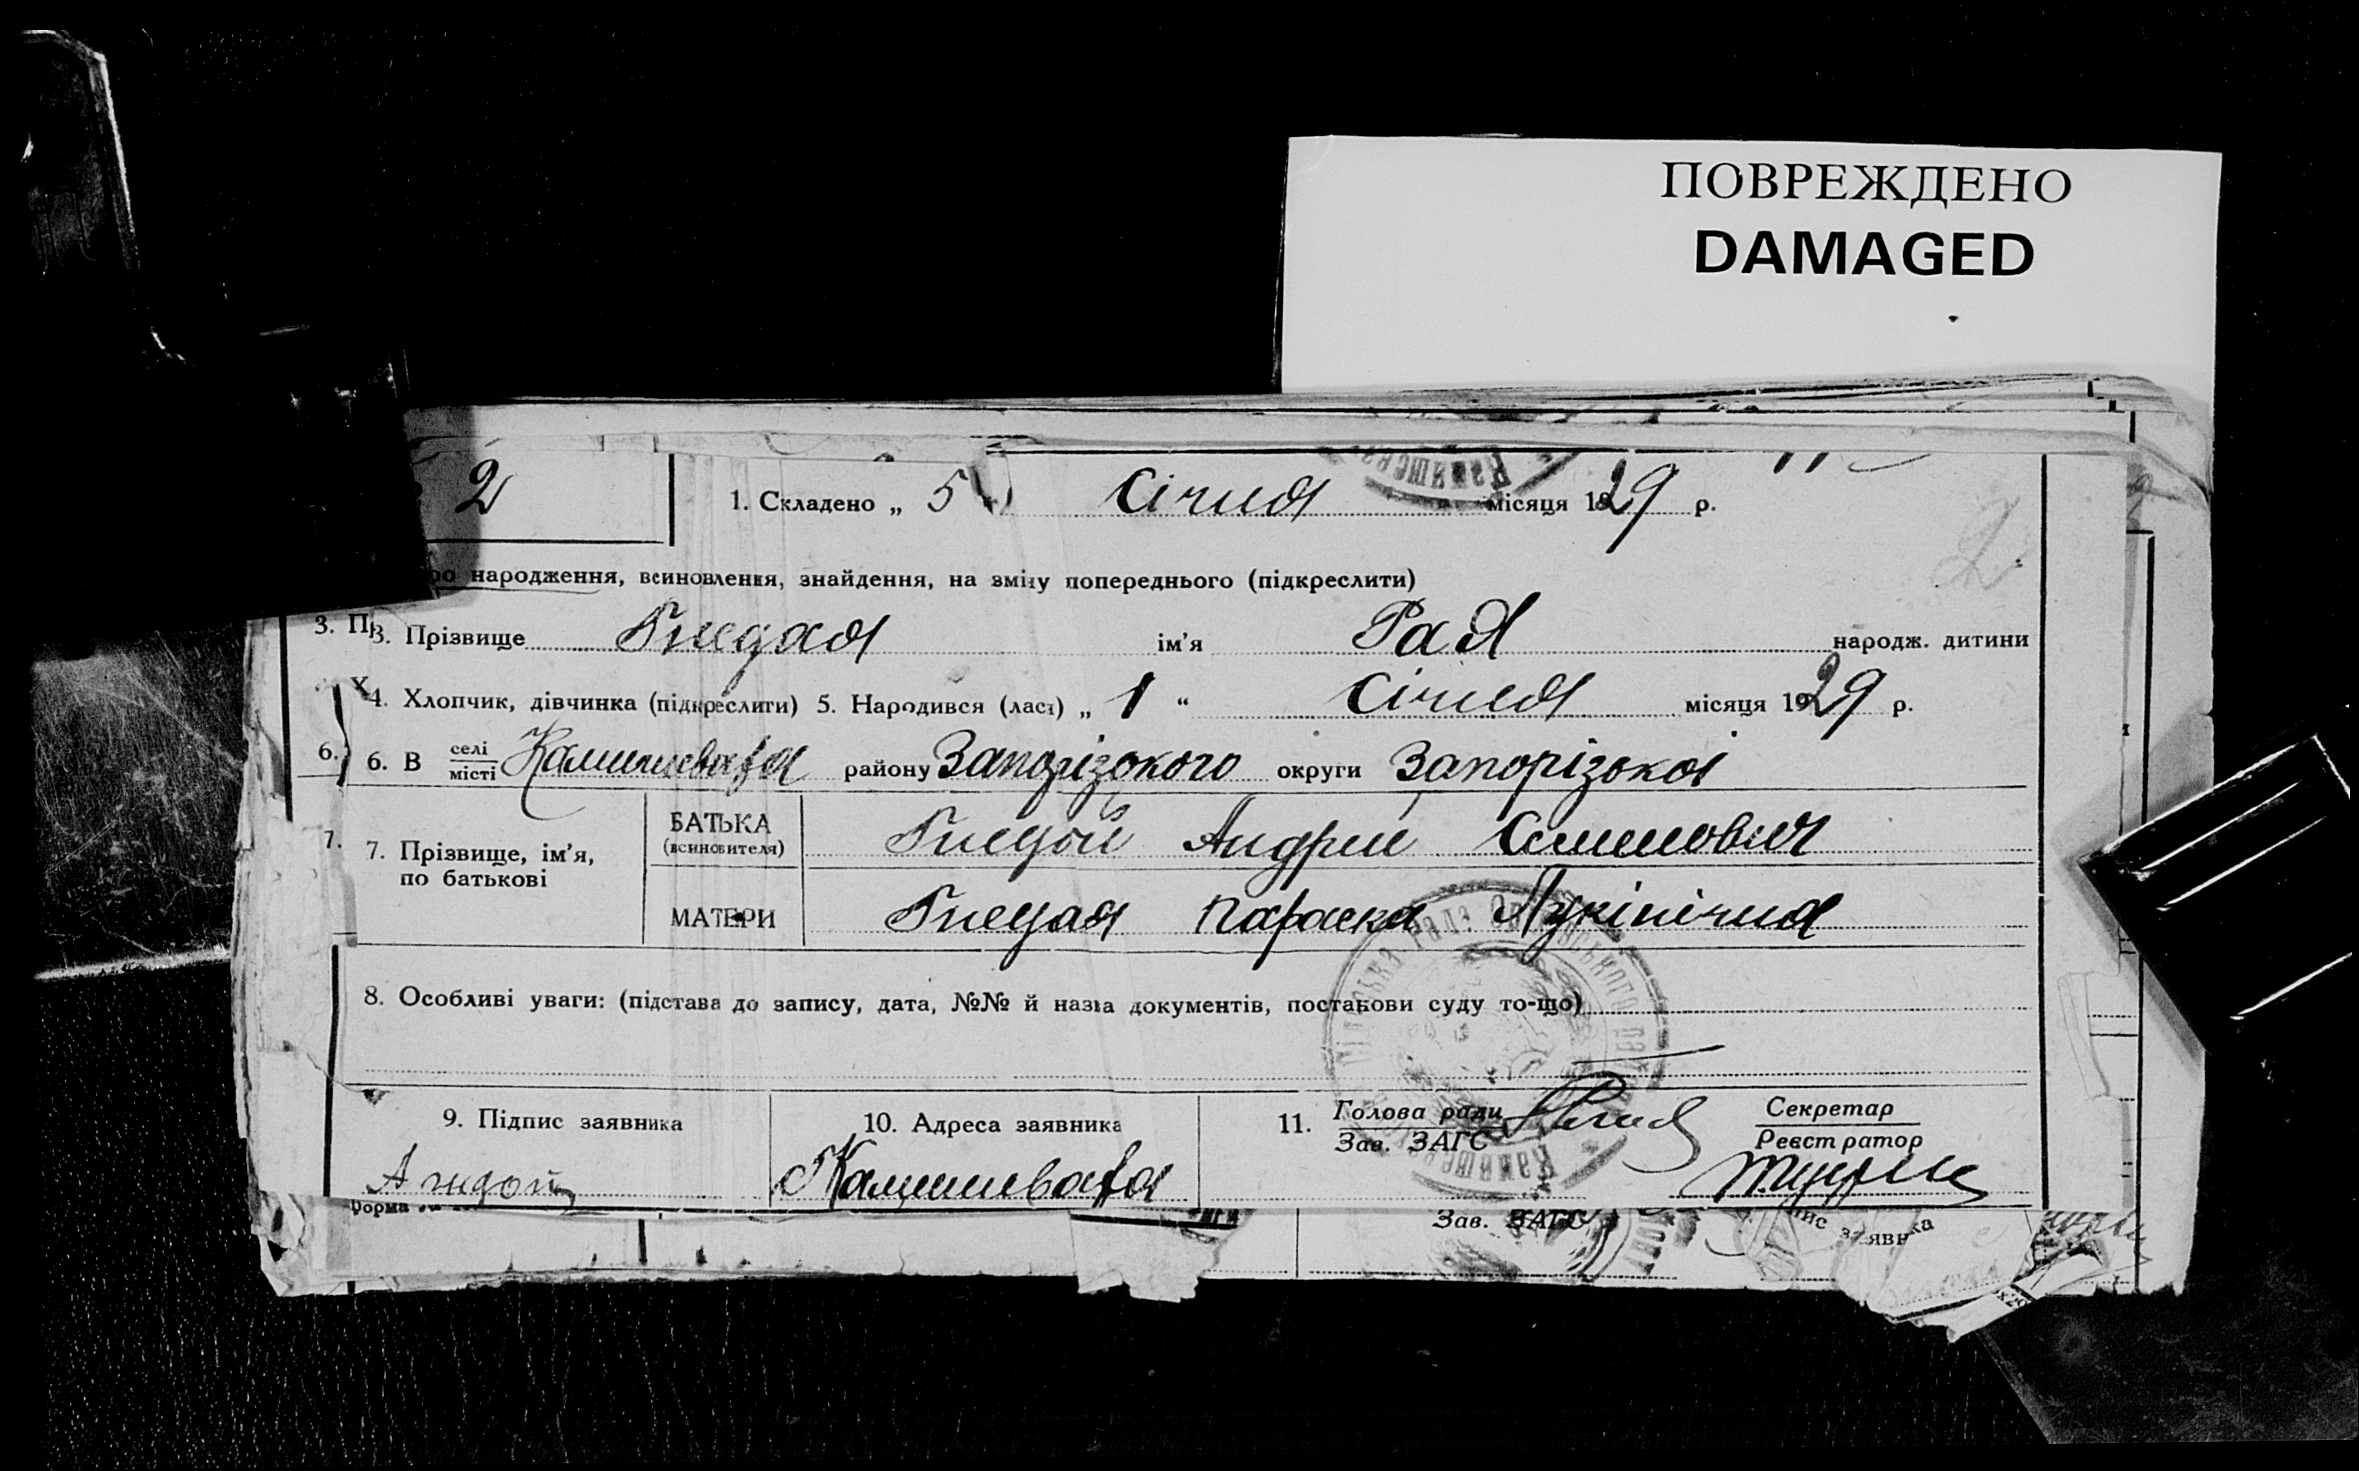 ПОВРЕЖДЕНО
DAMAGED
2
1. Складено „ 5 " Січня місяця 1929 р.
ро народження, всиновлення, знайдення, на зміну попереднього (підкреслити)
3. Пр
3. Прізвище Гнедая ім'я Рая народж. дитини
Х
4. Хлопчик, дівчинка (підкреслити) 5. Народився (лась) „ 1 “ Січня місяця 1929 р.
6.
6. В селі
місті Камишевата району Запорізького округи Запорізької
7.
7. Прізвище, ім'я, по батькові
БАТЬКА (всиновителя) Гнедой Андрей Семенович
МАТЕРИ Гнедая Параска Лукінічна
8. Особливі уваги: (підстава до запису, дата, №№ й назва документів, постанови суду то-що)
9. Підпис заявника
10. Адреса заявника
11. Голова ради
Зав. ЗАГС
Секретар
Реєстратор
А гндой
Камишевата
Форма
Зав. ЗАГС
пис заявника